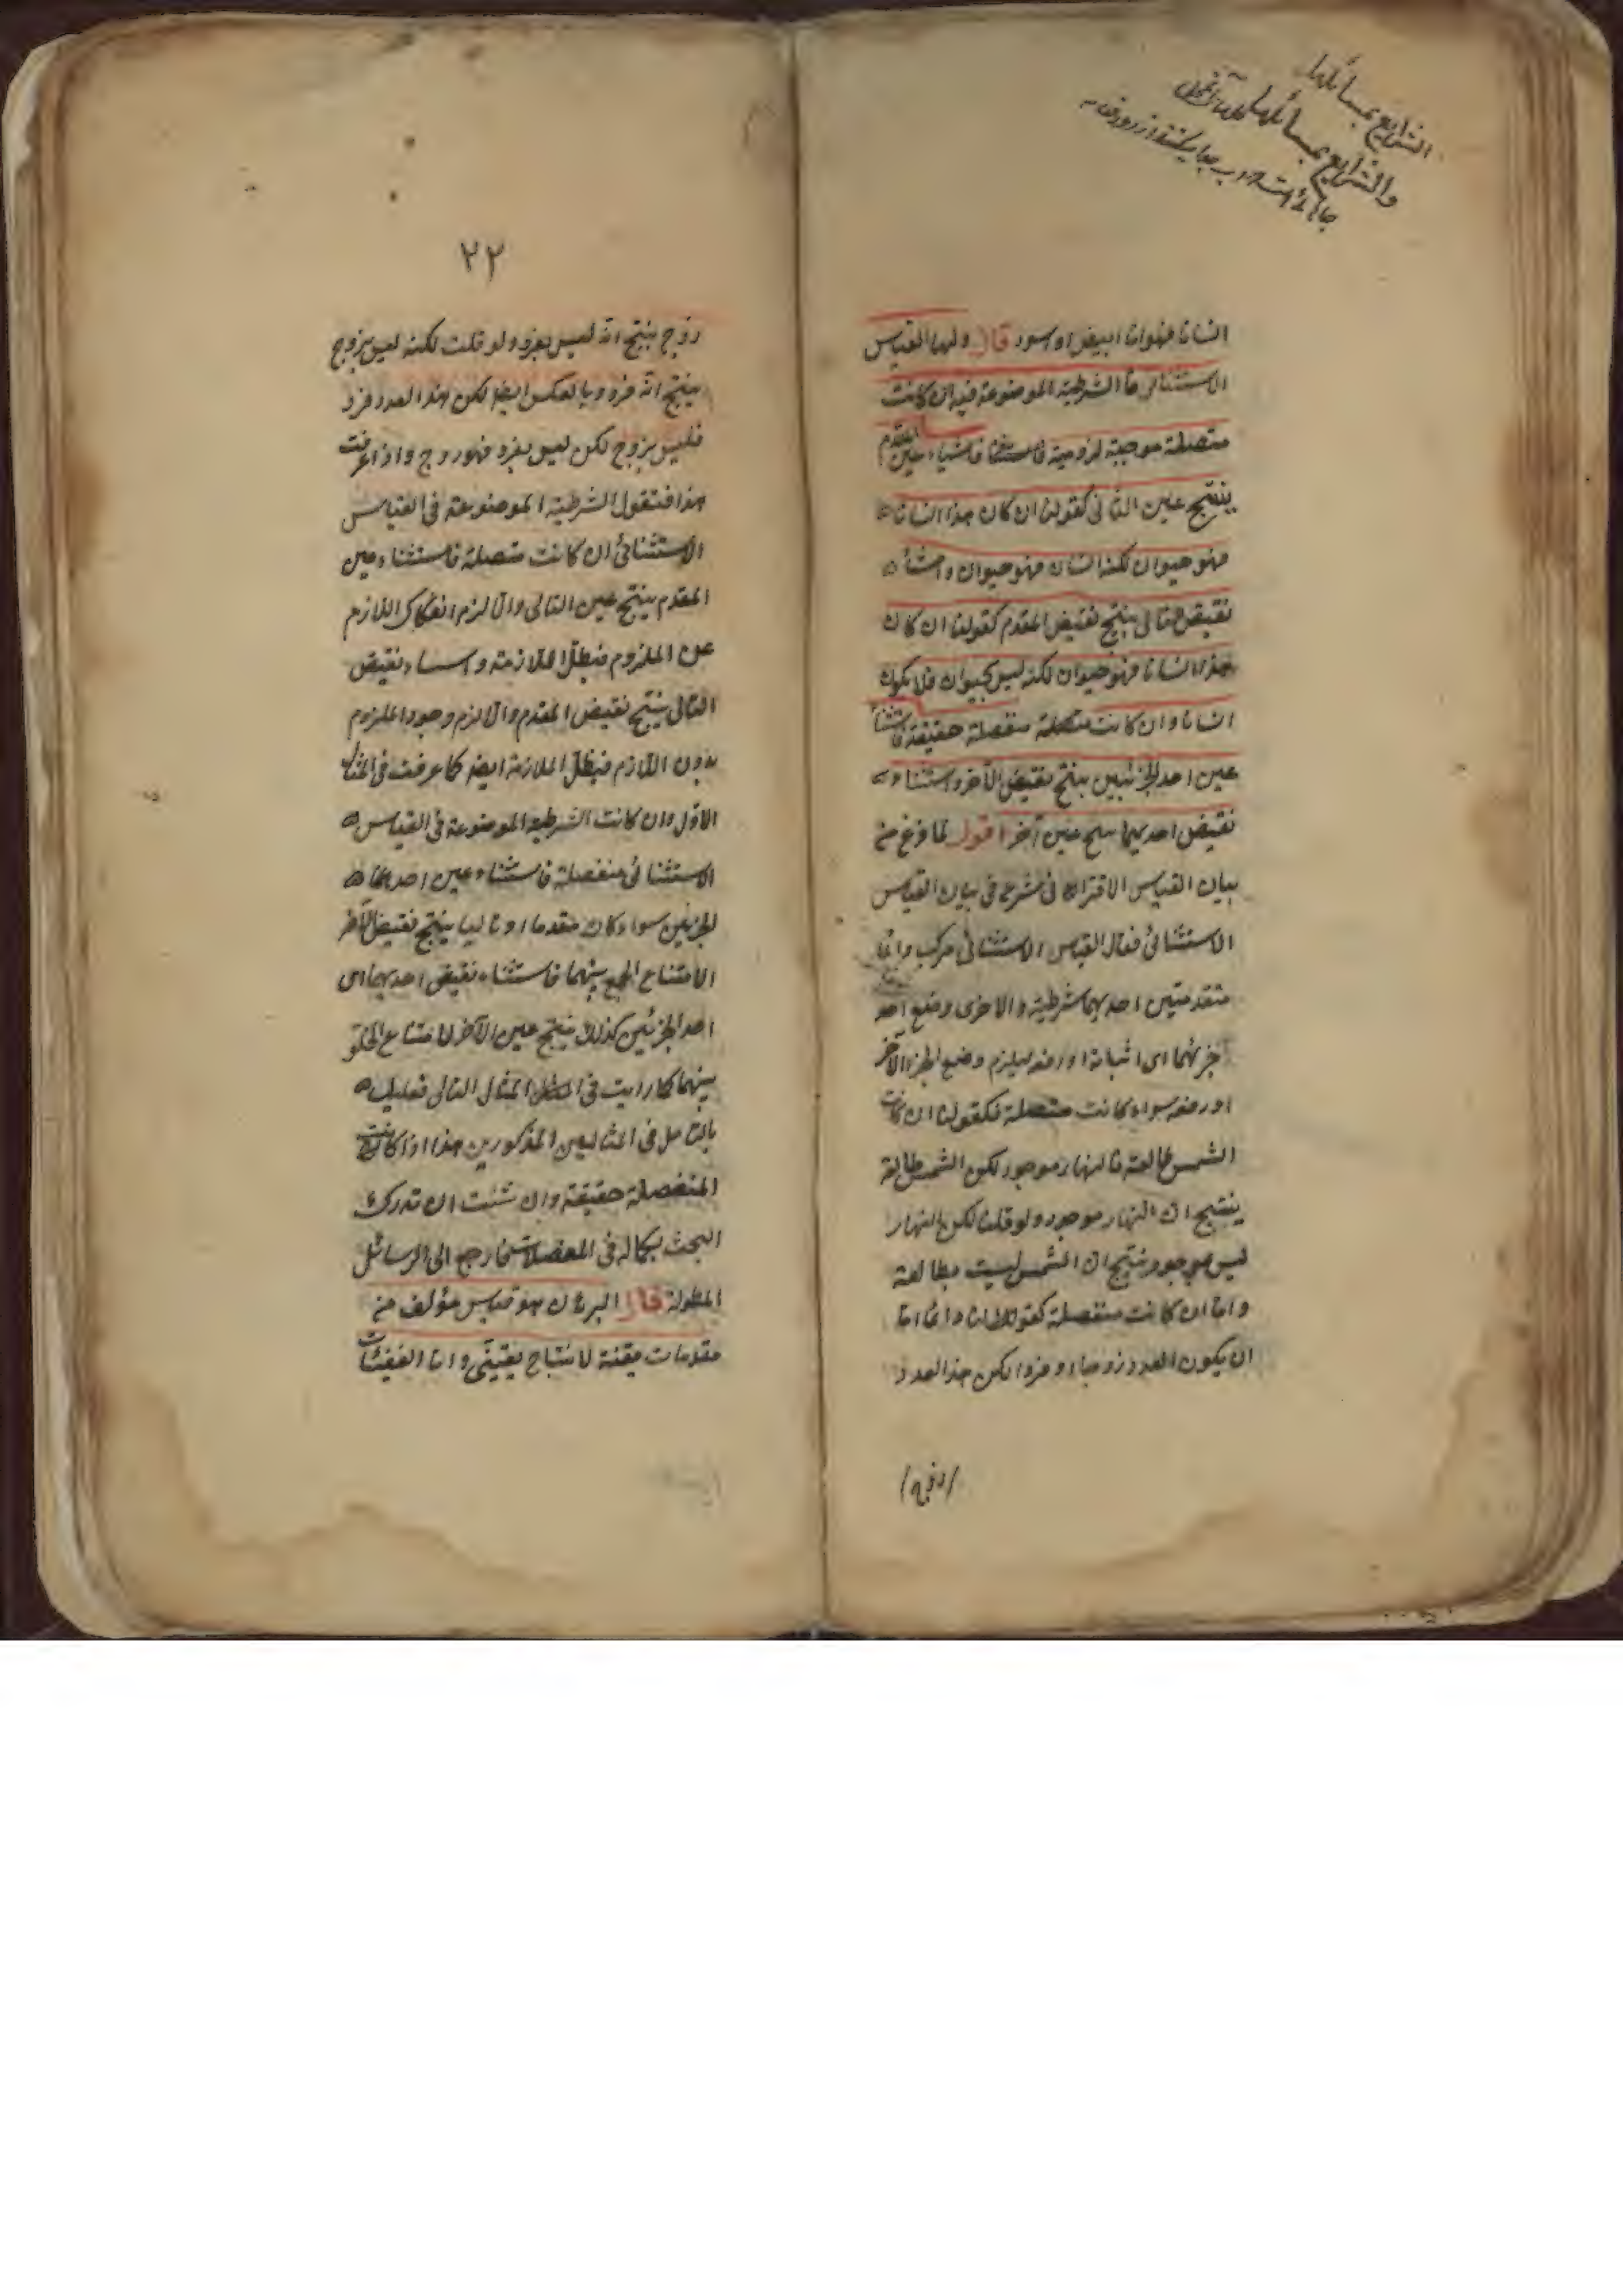 الشرايع بمسائلها
والشرايع بمسائلها
انسانا فهو اما ابيض او اسود قال واما القياس
الاستثنائى فالشرطية الموضوعة فيه ان كانت
متصلة موجبة لزومية فاستثناء عين المقدم
ينتج عين التالى كقولنا ان كان هذا انسانا
فهو حيوان لكنه انسان فهو حيوان واستثناء
نقيض التالى ينتج نقيض المقدم كقولنا ان كان
هذا انسانا فهو حيوان لكنه ليس بحيوان فلا يكون
انسانا وان كانت منفصلة حقيقة فاستثناء
عين احد الجزئين ينتج نقيض الآخر واستثناء
نقيض احديهما ينتج عين آخر اقول لما فرغ من
بيان القياس الاقترانى شرع فى بيان القياس
الاستثنائى فقال القياس الاستثنائى مركب دائما
متقدمتين احديهما شرطية والاخرى وضع احد
جزئهما اى اثباته او رفعه ليلزم وضع الجزء الآخر
او رفعه سواء كانت متصلة فكقولنا ان كانت
الشمس طالعة فالنهار موجود لكن الشمس طالعة
ينتج ان النهار موجود ولو قلنا لكن النهار
ليس بموجود ينتج ان الشمس ليست بطالعة
واما ان كانت منفصلة كقولنا دائما اما
ان يكون العدد زوجا او فردا لكن هذا العدد
۲۲
زوج ينتج انه ليس بفرد ولو قلت لكنه ليس بزوج
ينتج انه فرد وبالعكس ايضا لكن هذا العدد فرد
فليس بزوج لكن ليس بفرد فهو زوج واذا عرفت
هذا فنقول الشرطية الموضوعة فى القياس
الاستثنائى ان كانت متصلة فاستثناء عين
المقدم ينتج عين التالى والا لزم انفكاك اللازم
عن الملزوم فيبطل الملازمة واستثناء نقيض
التالى ينتج نقيض المقدم والا لزم وجود الملزوم
بدون اللازم فيبطل الملازمة ايضا كما عرفت فى المثال
الاول وان كانت الشرطية الموضوعة فى القياس
الاستثنائى منفصلة فاستثناء عين احدهما
الجزئين سواء كان مقدما او تاليا ينتج نقيض الآخر
الامتناع الجمع بينهما فاستثناء نقيض احديهما اى
احد الجزئين كذلك ينتج عين الآخر لامتناع الخلو
بينهما كما رايت فى المثال التالى فعليك
بالتامل فى المثالين المذكورين هذا اذا كانت
المنفصلة حقيقة وان شئت ان تدرك
البحث بكماله فى المعضلات فارجع الى الرسائل
المطولة قال البرهان هو قياس مؤلف من
مقدمات يقينة لانتاج يقينى واما اليقينيات